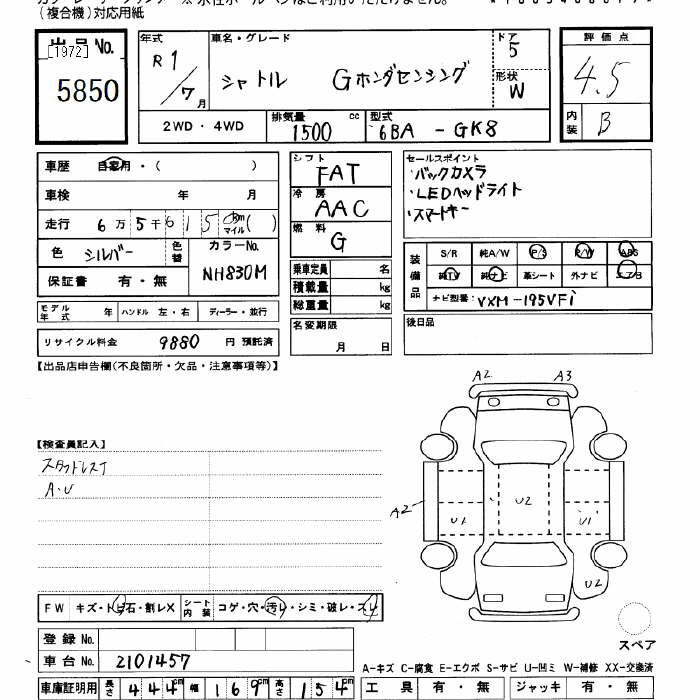 (複合機)対応用紙
出品 No.
[1972]
5850
年式
R 1
/7 月
車名・グレード
シャトル Gホンダセンシング
ドア
5
形状
W
評価点
4.5
内装
B
2WD・4WD
排気量 cc
1500
型式
6BA - GK8
車歴 自家用・( )
車検 年 月
走行 6万5千615 km マイル ( )
色 シルバー 色替
カラーNo.
NH830M
保証書 有・無
モデル年式 年 ハンドル 左・右 ディーラー・並行
リサイクル料金 9880 円 預託済
シフト
FAT
冷房
AAC
燃料
G
乗車定員 名
積載量 kg
総重量 kg
名変期限
月 日
セールスポイント
・バックカメラ
・LEDヘッドライト
・スマートキー
装備品
S/R 純A/W P/S R/W ABS
純TV 純ナビ 革シート 外ナビ エアB
ナビ型番: VXM-195VFi
後日品
【出品店申告欄(不良箇所・欠品・注意事項等)】
【検査員記入】
スタッドレスT
A・U
A2 A3
A2
U1 U2 U1
U2
スペア
FW キズ・トビ石・割レX シート内装 コゲ・穴・汚レ・シミ・破レ・スレ
登録 No.
車台 No. 2101457
A-キズ C-腐食 E-エクボ S-サビ U-凹ミ W-補修 XX-交換済
車庫証明用 長さ 444cm 幅 169cm 高さ 154cm
工具 有・無 ジャッキ 有・無